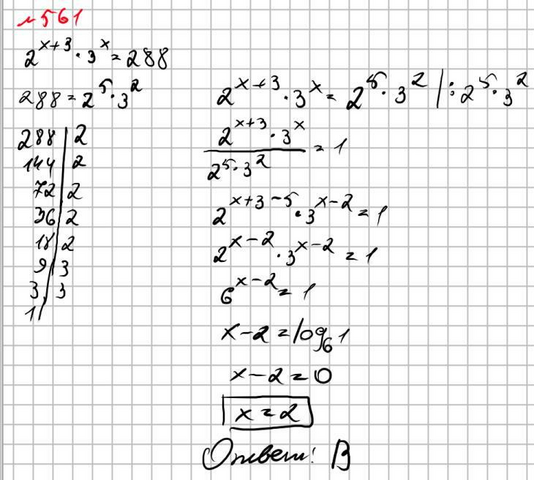 №561
2^{x+3}·3^x=288
288=2^5·3^2
288|2
144|2
72|2
36|2
18|2
9|3
3|3
1|
2^{x+3}·3^x=2^5·3^2 |:2^5·3^2
\frac{2^{x+3}·3^x}{2^5·3^2}=1
2^{x+3-5}·3^{x-2}=1
2^{x-2}·3^{x-2}=1
6^{x-2}=1
x-2=log_6 1
x-2=0
x=2
Ответ: В